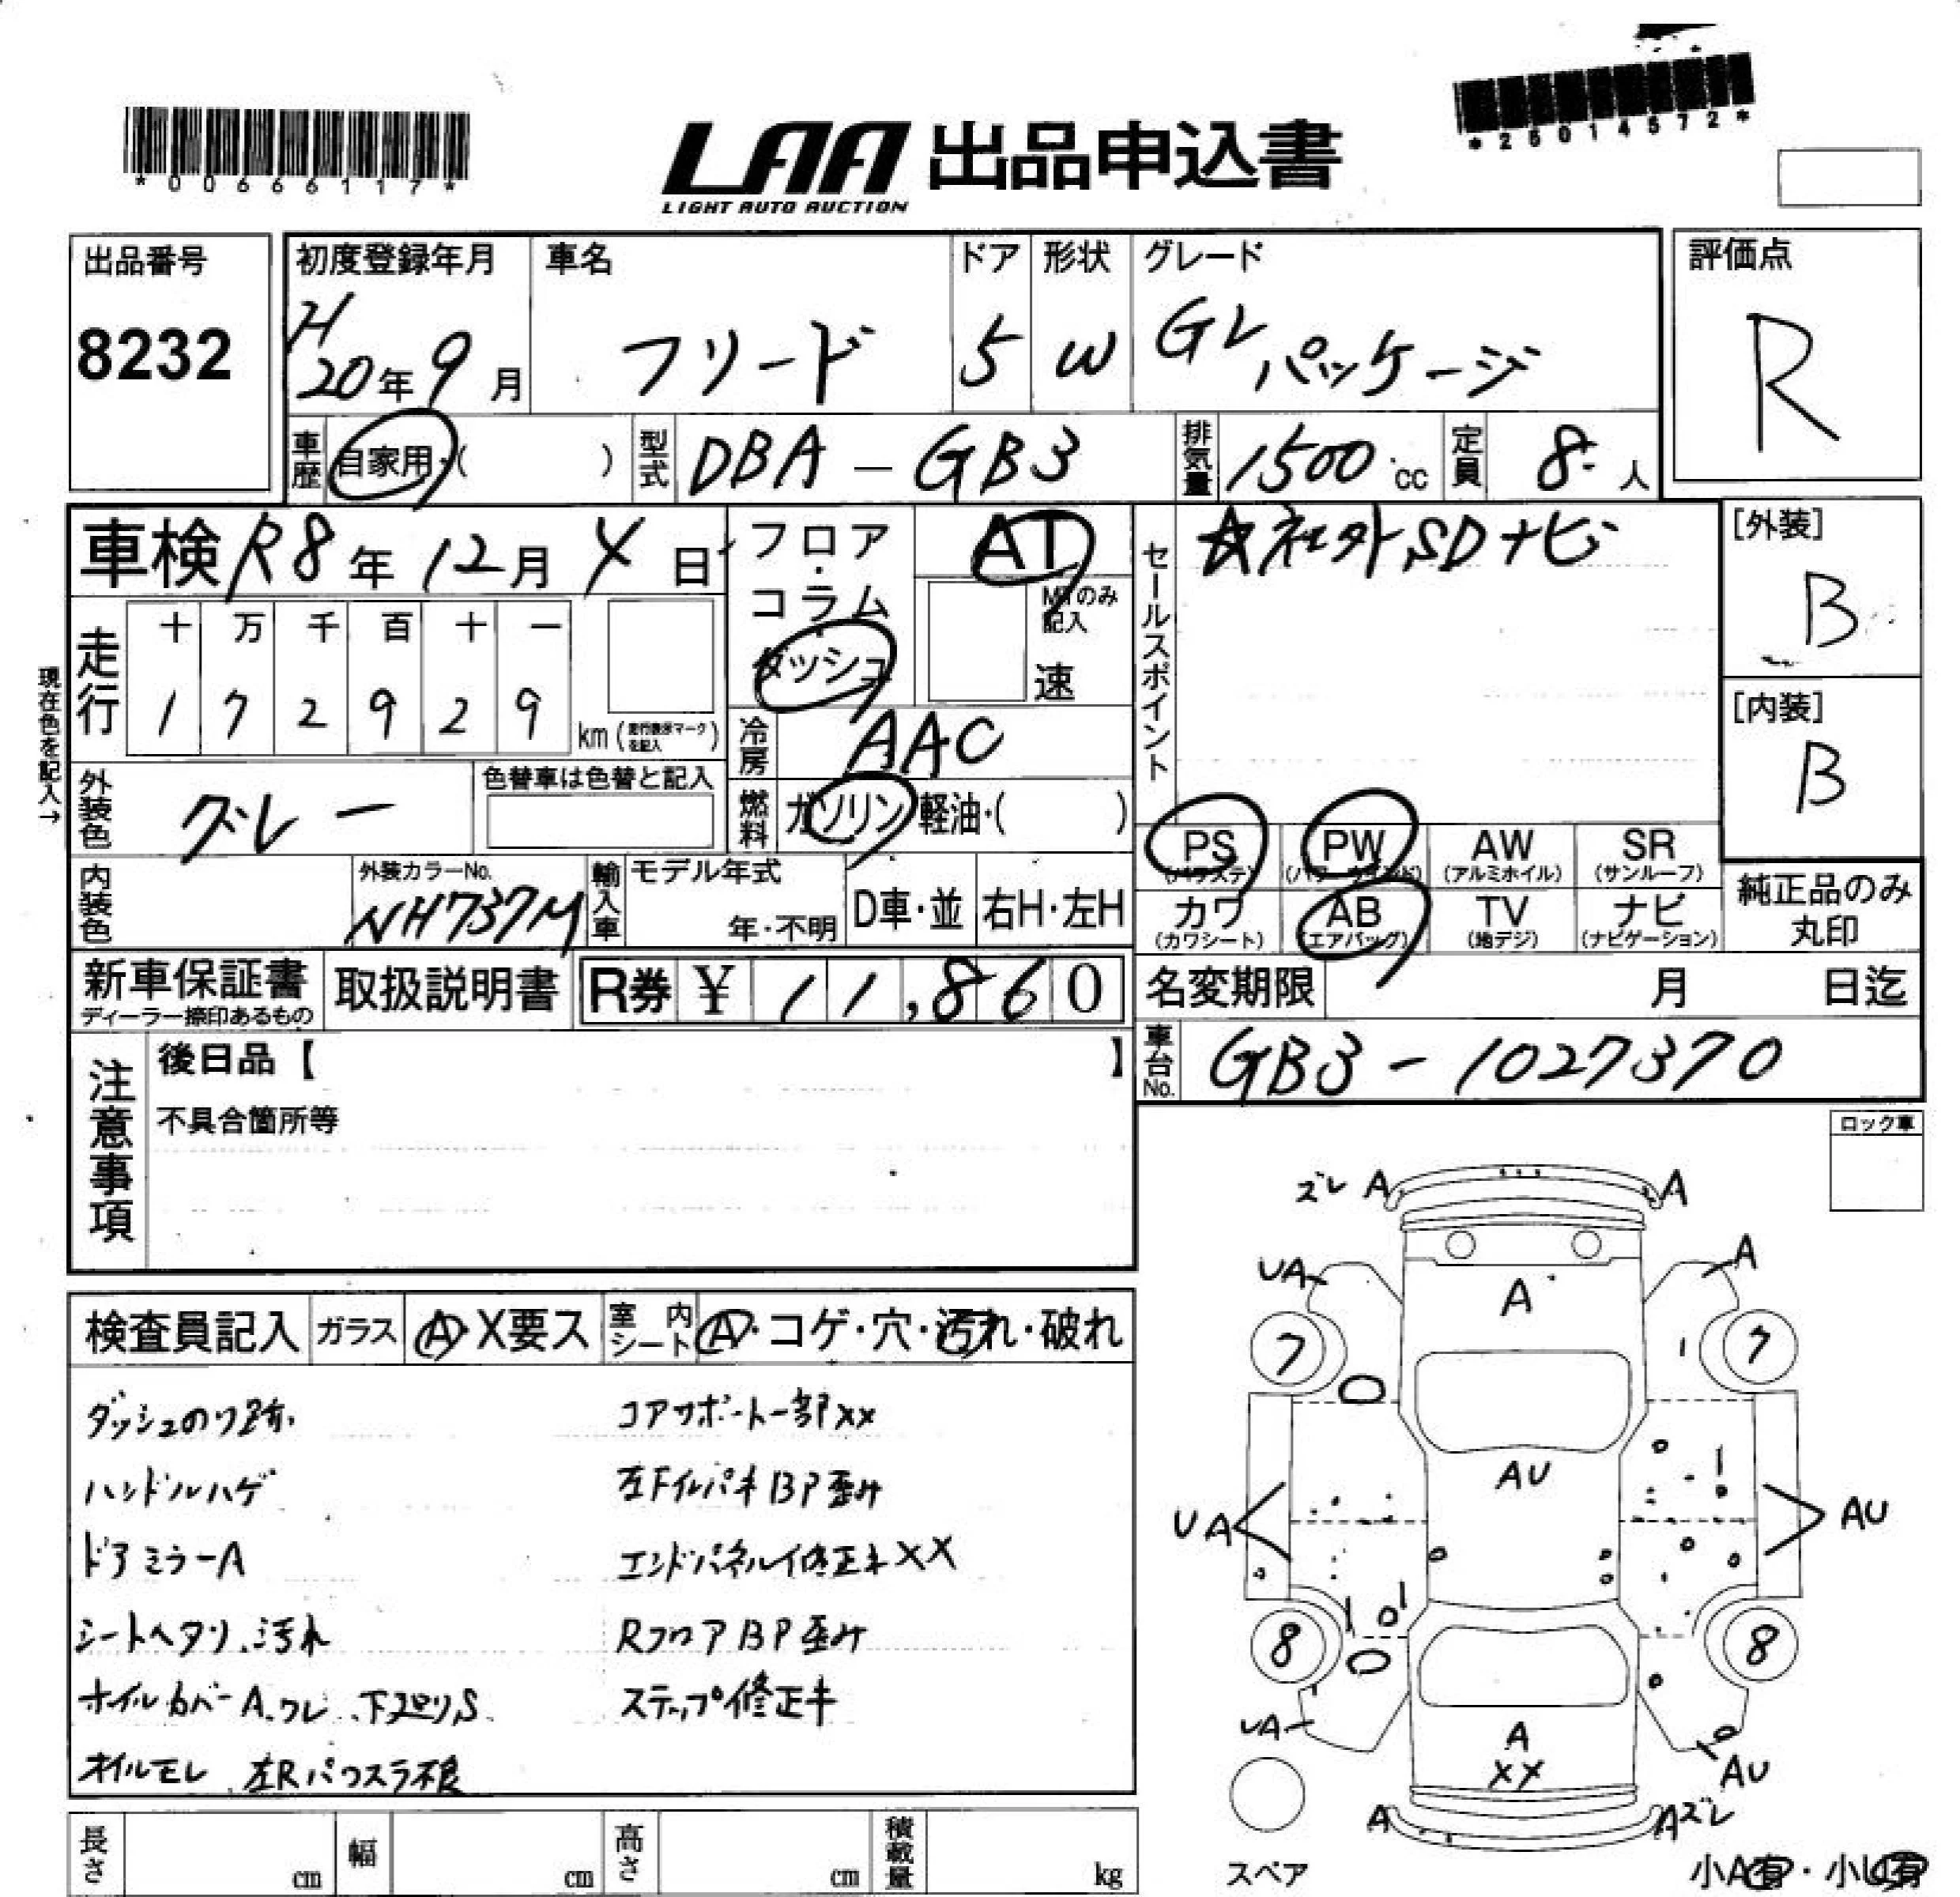 *00666117*
LAA 出品申込書
LIGHT AUTO AUCTION
*26014572*
出品番号
8232
初度登録年月
H20年9月
車名
フリード
ドア
5
形状
W
グレード
GLパッケージ
評価点
R
車歴
自家用・( )
型式
DBA-GB3
排気量
1500cc
定員
8人
車検 R8年12月4日
フロア・コラム・ダッシュ
AT
MTのみ記入
速
セールスポイント
☆社外SDナビ
[外装]
B
[内装]
B
現在色を記入→
走行
十 万 千 百 十 一
1 7 2 9 2 9
km(走行表示マークを記入)
冷房
AAC
外装色
グレー
色替車は色替と記入
燃料
ガソリン・軽油・( )
PS
(パワステ)
PW
(パワーウィンド)
AW
(アルミホイル)
SR
(サンルーフ)
カワ
(カワシート)
AB
(エアバッグ)
TV
(地デジ)
ナビ
(ナビゲーション)
純正品のみ丸印
内装色
外装カラーNo.
NH737M
輸入車
モデル年式
年・不明
D車・並
右H・左H
新車保証書
ディーラー捺印あるもの
取扱説明書
R券 ¥ 11,860
名変期限 月 日迄
車台No.
GB3-1027370
注意事項
後日品【 】
不具合箇所等
ロック車
検査員記入
ガラス
A・X要ス
室内シート
A・コゲ・穴・汚れ・破れ
ダッシュのり跡
ハンドルハゲ
ドアミラーA
シートヘタリ、汚れ
ホイルカバーA、ワレ、下廻りS
オイルモレ 左Rパワスラ不良
コアサポート一部XX
左FインパネBP歪み
エンドパネル修正キXX
RフロアBP歪み
ステップ修正キ
ズレ A A
UA A
A
7 7
AU
UA AU
8 8
UA A AU
XX
A Aズレ
スペア
小A有・小U有
長さ cm
幅 cm
高さ cm
積載量 kg